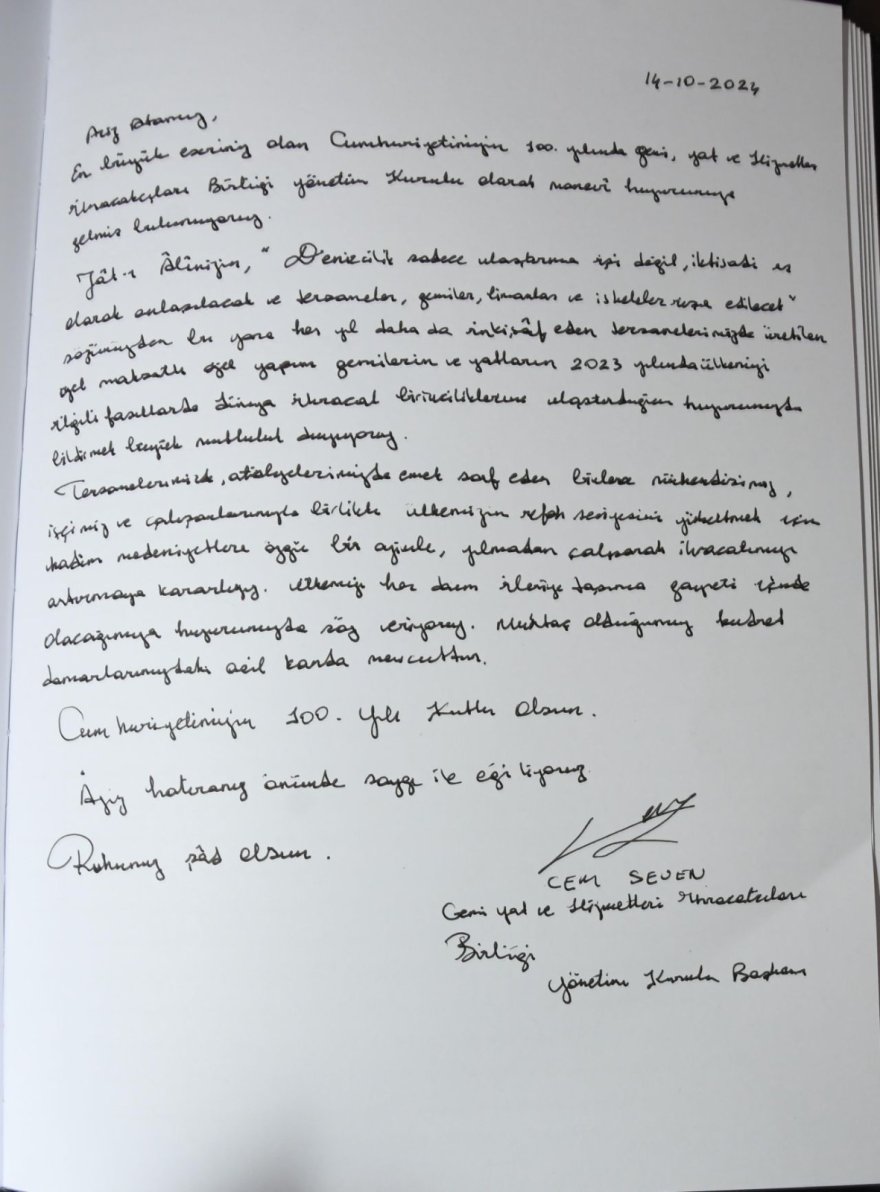 14-10-2024
Aziz Atamız,
En büyük eseriniz olan Cumhuriyetimizin 100. yılında gemi, yat ve Hizmetleri
ihracatçıları Birliği yönetim Kurulu olarak manevî huzurunuza
gelmiş bulunuyoruz.
Zât-ı Âlinizin, "Denizcilik sadece ulaştırma işi değil, iktisadi iş
olarak anlaşılacak ve tersaneler, gemiler, limanlar ve iskeleler inşa edilecek"
sözünüzden bu yana her yıl daha da inkişâf eden tersanelerimizde üretilen
özel maksatlı özel yapım gemilerin ve yatların 2023 yılında ülkemizi
ilgili fasıllarda dünya ihracat birinciliklerine ulaştırdığını huzurunuzda
bildirmek büyük mutluluk duyuyoruz.
Tersanelerimizde, atölyelerimizde emek sarf eden binlerce mühendisimiz,
işçimiz ve çalışanlarımızla birlikte ülkemizin refah seviyesini yükseltmek için
kadim medeniyetlere özgü bir azimle, yılmadan çalışarak ihracatımızı
artırmaya kararlıyız. Ülkemizi her daim ileriye taşıma gayreti içinde
olacağımıza huzurunuzda söz veriyoruz. Muhtaç olduğumuz kudret
damarlarımızdaki asil kanda mevcuttur.
Cumhuriyetimizin 100. Yılı Kutlu Olsun.
Aziz hatıranız önünde saygı ile eğiliyoruz
Ruhunuz şâd olsun.
CEM SEVEN
Gemi yat ve Hizmetleri İhracatçıları
Birliği
Yönetim Kurulu Başkanı